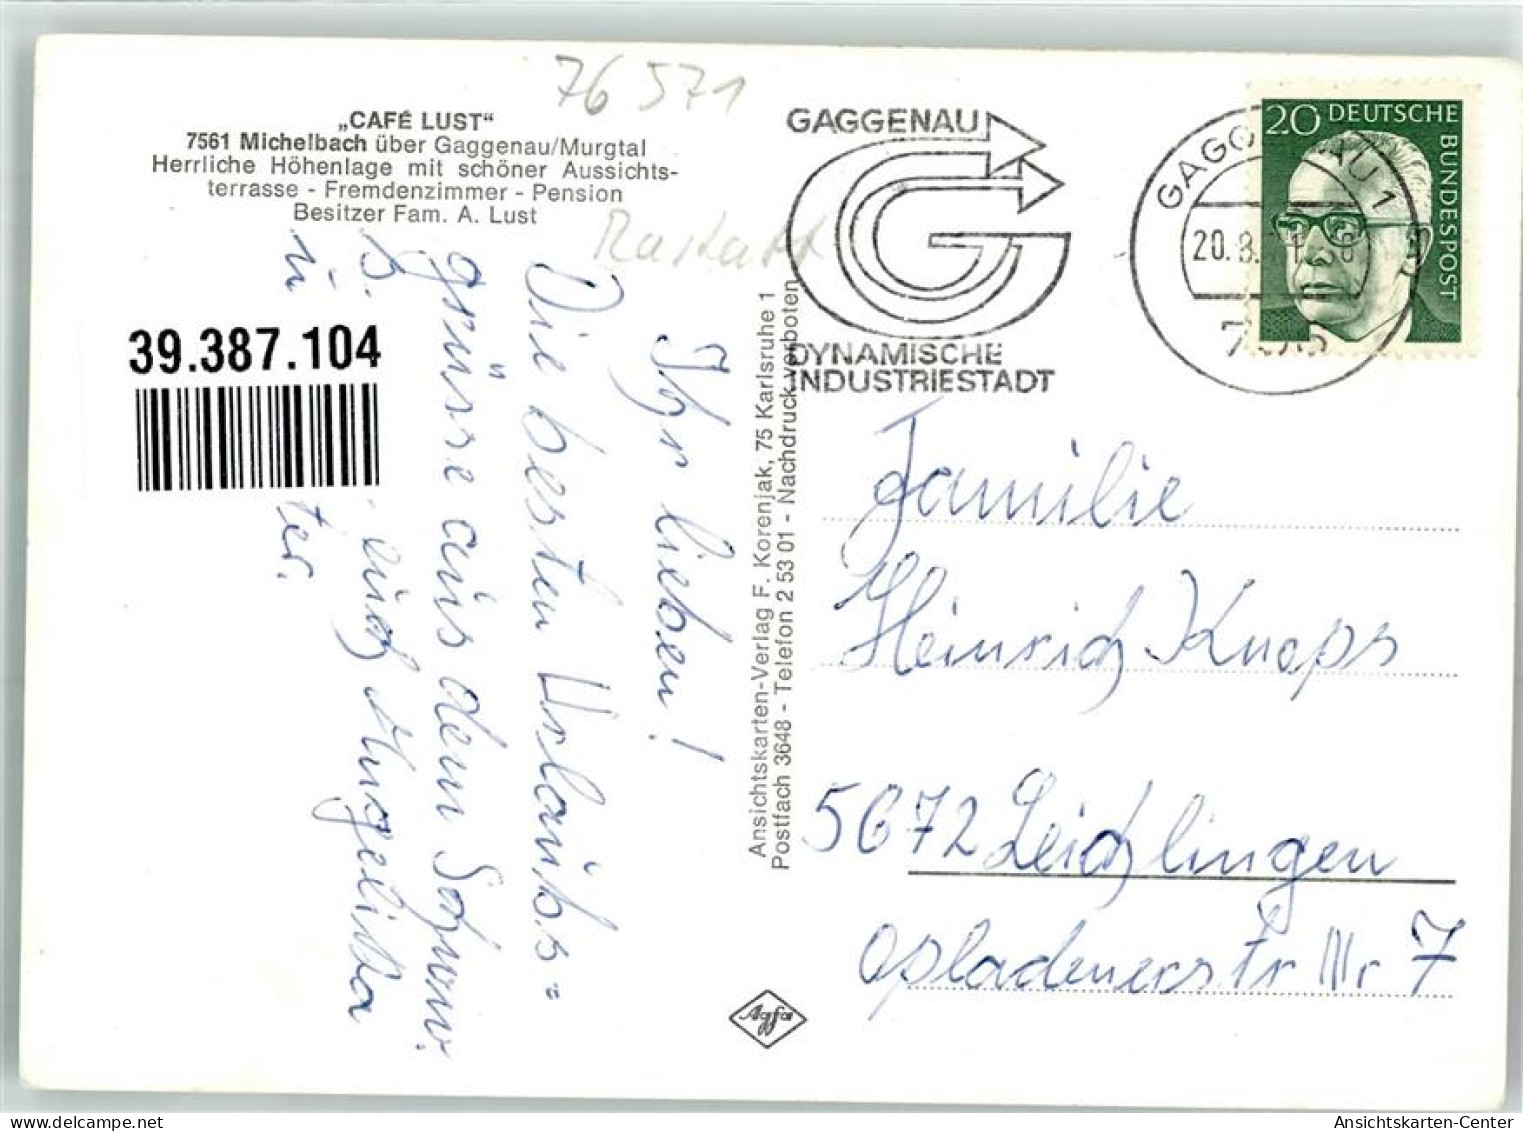 76571
„CAFÉ LUST“
7561 Michelbach über Gaggenau/Murgtal
Herrliche Höhenlage mit schöner Aussichts-
terrasse - Fremdenzimmer - Pension
Besitzer Fam. A. Lust
Rastatt
39.387.104
Ihr lieben!
Die besten Urlaubs=
grüsse aus dem Schwarzw.
euch Angelika
ter.
Ansichtskarten-Verlag F. Korenjak, 75 Karlsruhe 1
Postfach 3648 - Telefon 2 53 01 - Nachdruck verboten
Agfa
GAGGENAU
DYNAMISCHE
INDUSTRIESTADT
GAGGENAU 1
20.8.
20 DEUTSCHE
BUNDESPOST
Familie
Heinrich Knops
5672 Leichlingen
Opladenerstr Nr 7
Ansichtskarten-Center